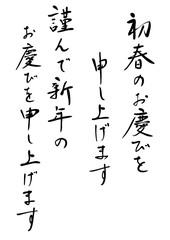 初春のお慶びを
申し上げます
謹んで新年の
お慶びを申し上げます